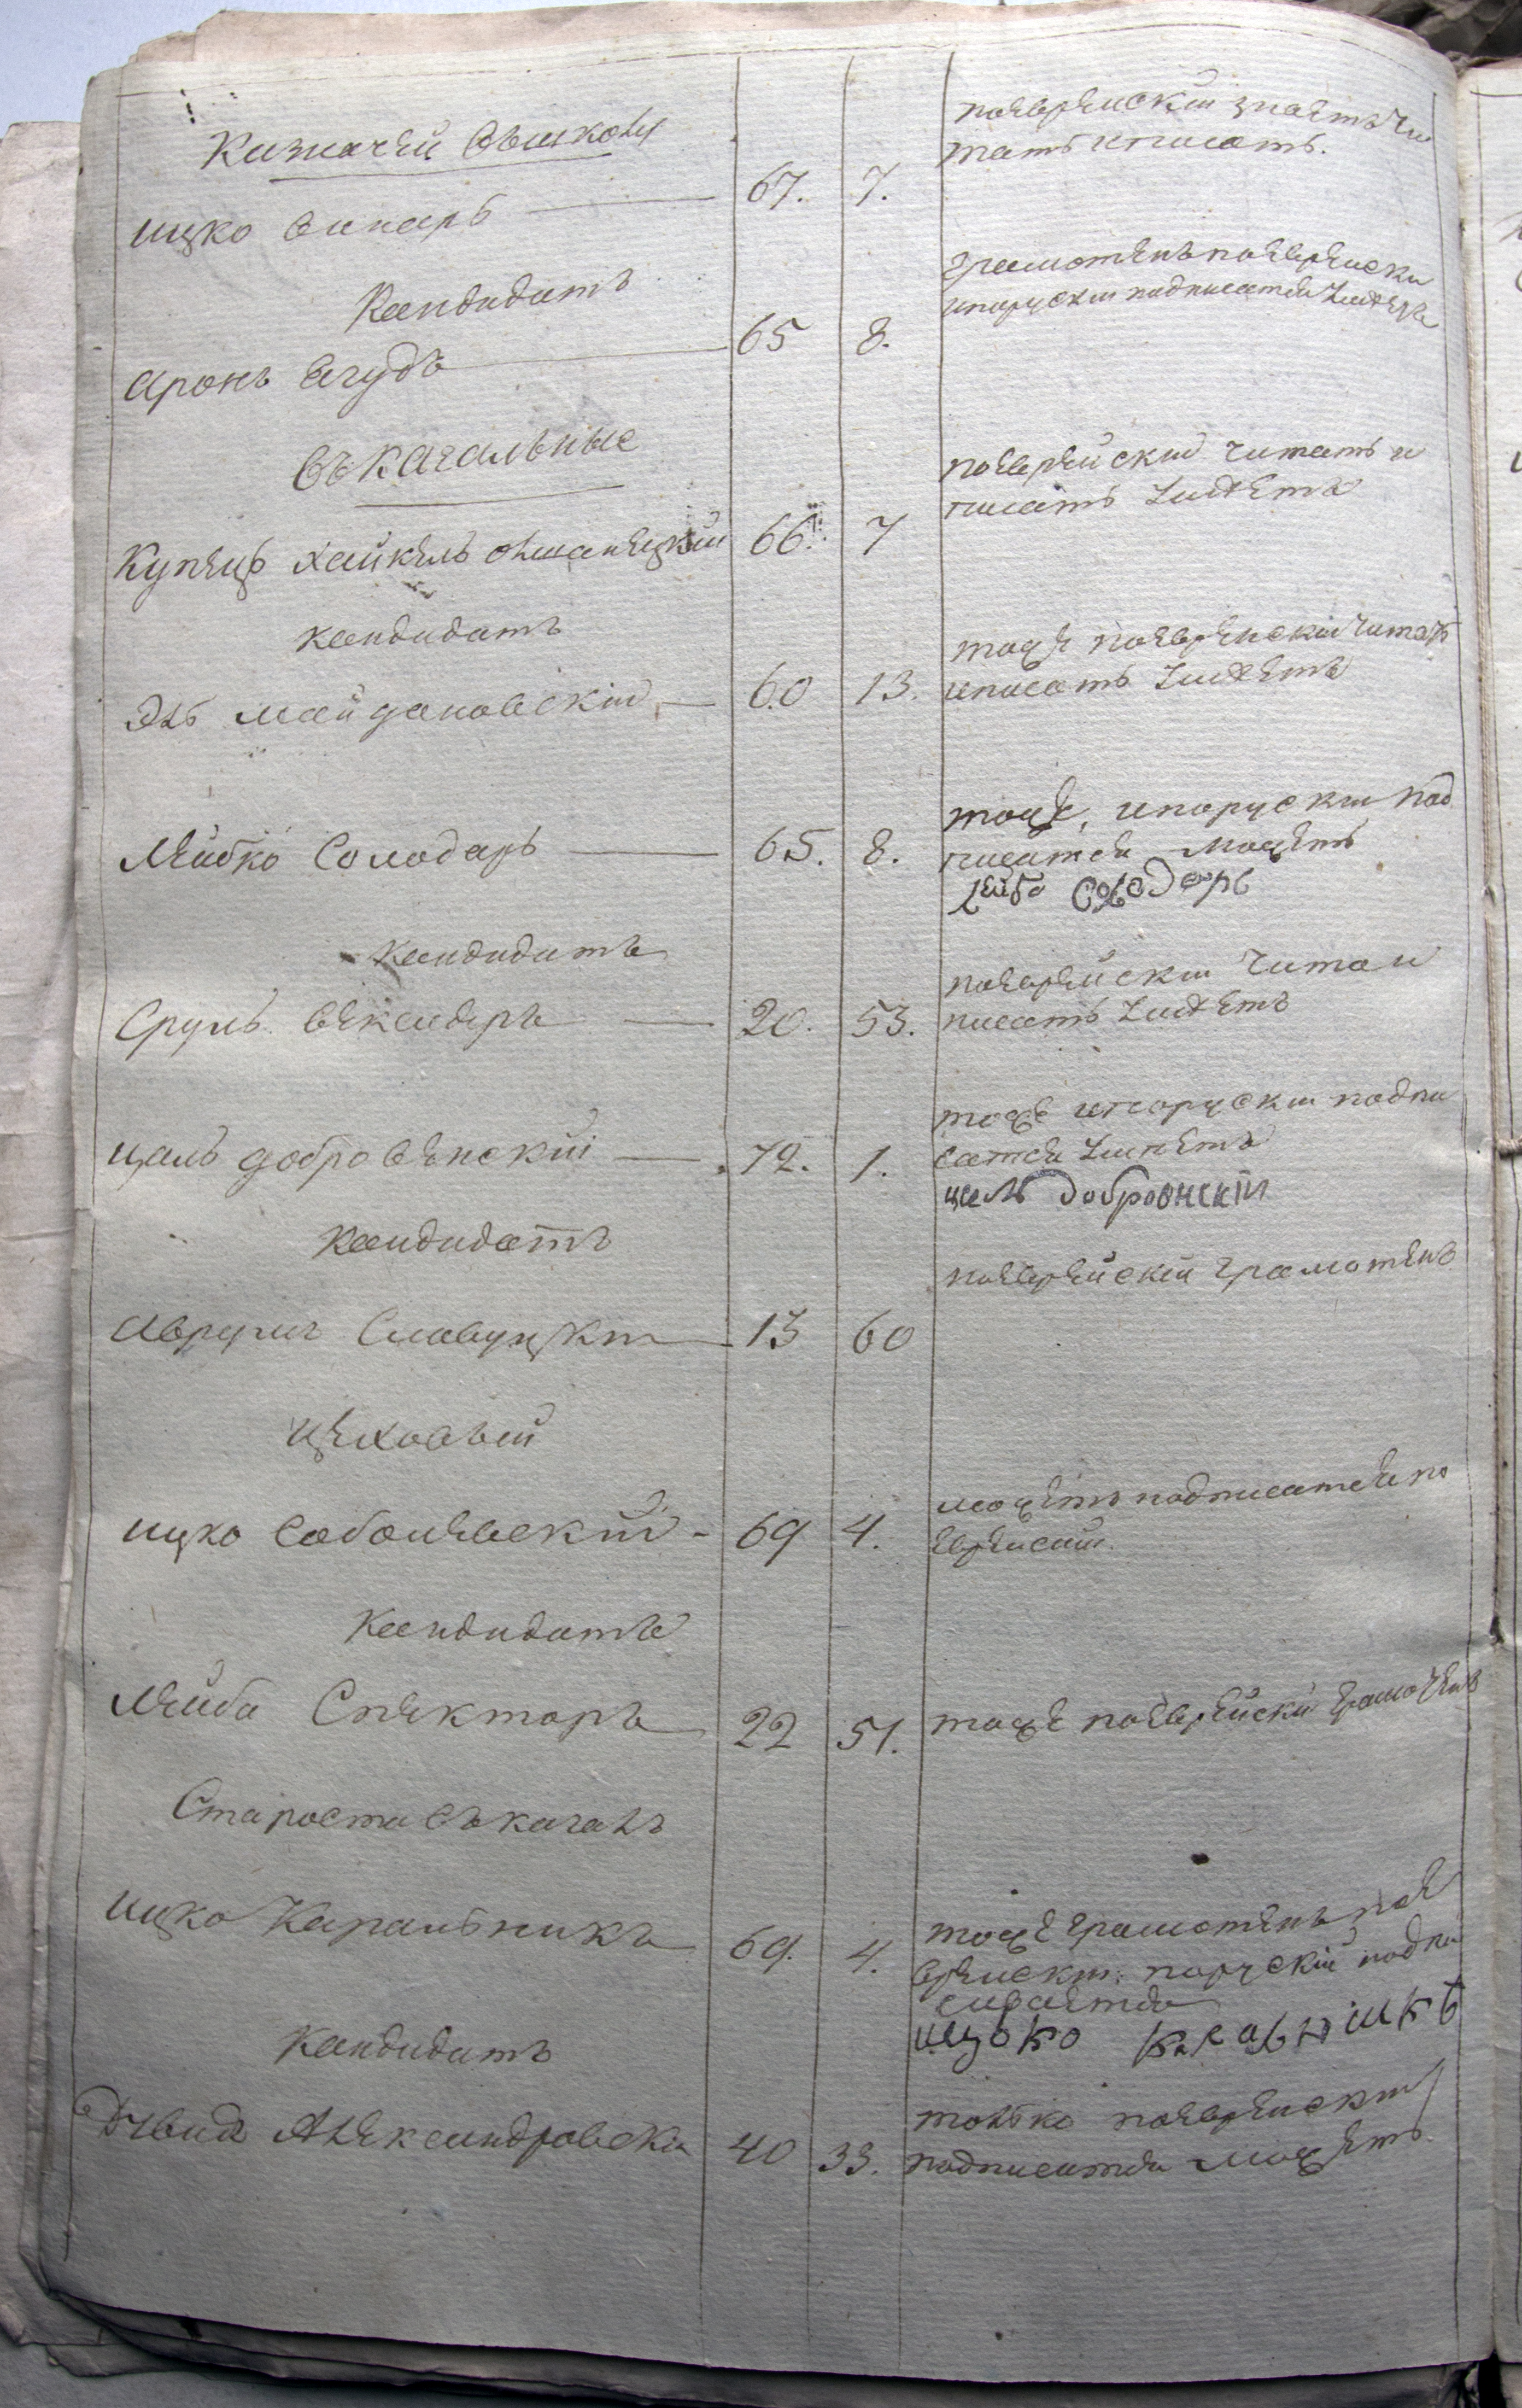 Казначей
ицко винарь 67. 7.
поеврейский знаетъ чи
тать и писать.
Кандидатъ
аронъ Ягудъ 65 8.
грамотенъ поеврейски
ипоруский подписатся умѣетъ
Въ Кагальные
Купецъ Хайкель 66. 7
поеврейский читать и
писать умѣетъ
кандидатъ
Эль майдановский 60 13.
тоже поеврейский читать
иписать умѣетъ
Лейбко Солодарь 65. 8.
тоже, ипоруский под
писатся можетъ
лейба солодарь
кандидатъ
Сруль векслеръ 20. 53.
поеврейский читат и
писать умѣетъ
цаль добровенский 72. 1.
тоже ипоруский подпи
сатся умѣетъ
цель добровнскій
Кандидатъ
Аврумъ Славуцкій 13 60
поеврейский грамотенъ
цеховый
ицко Соболевский 69 4.
можетъ подписатся по
еврейский.
Кандидатъ
Лейба Спекторъ 22 51.
тоже поеврейский грамотенъ
Староста въ кагалъ
ицко Каральникъ 69. 4.
тоже грамотенъ пое
врейский поруский подпи
сывается
ицоко каральникъ
Кандидатъ
Давидъ Александровски 40 33.
только поеврейский
подписатся можетъ